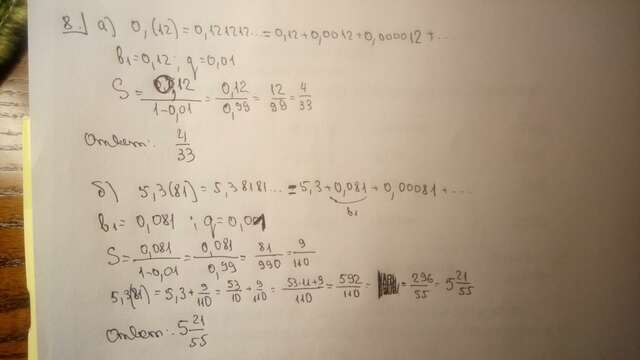 8. а) 0,(12) = 0,121212... = 0,12 + 0,0012 + 0,000012 + ...
b₁ = 0,12; q = 0,01
S = 0,12/(1-0,01) = 0,12/0,99 = 12/99 = 4/33
Ответ: 4/33
б) 5,3(81) = 5,38181... = 5,3 + 0,081 + 0,00081 + ...
b₁
b₁ = 0,081; q = 0,01
S = 0,081/(1-0,01) = 0,081/0,99 = 81/990 = 9/110
5,3(81) = 5,3 + 9/110 = 53/10 + 9/110 = (53·11+9)/110 = 592/110 = 296/55 = 5 21/55
Ответ: 5 21/55